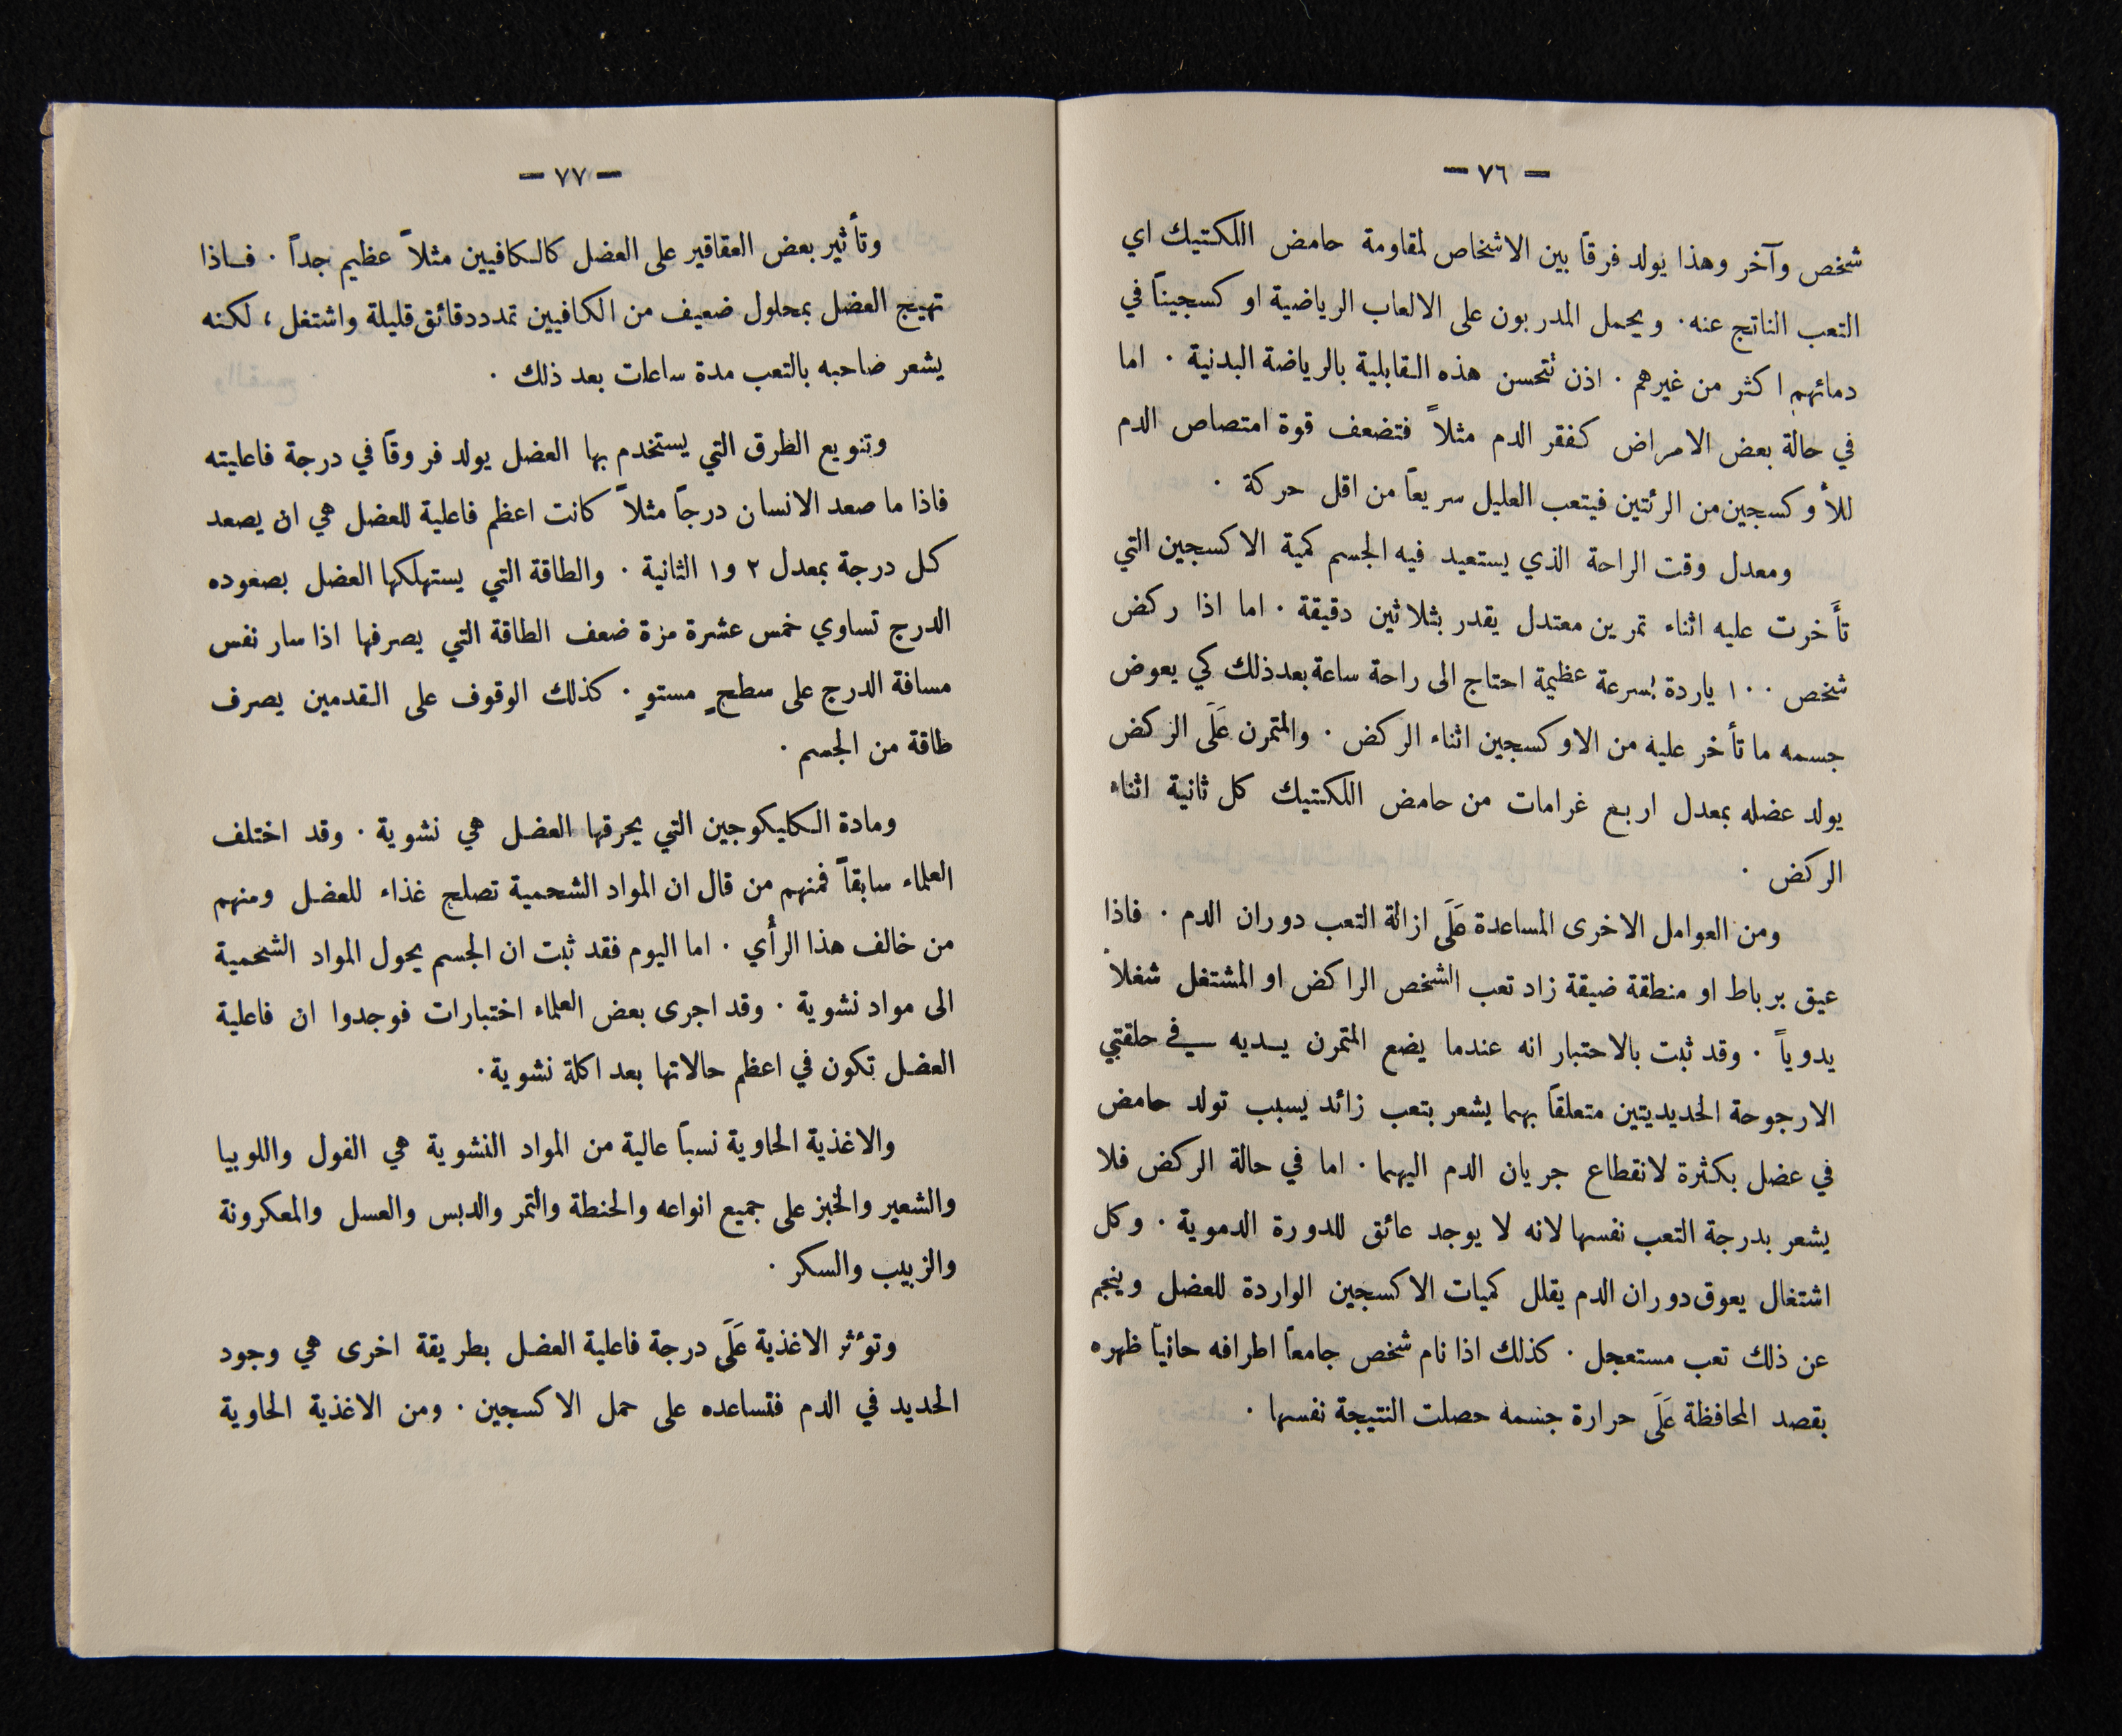 — ٧٦ —
شخص وآخر وهذا يولد فرقاً بين الاشخاص لمقاومة حامض اللكتيك اي
التعب الناتج عنه. ويحمل المدربون على الالعاب الرياضية اوكسجيناً في
دمائهم اكثر من غيرهم. اذن تتحسن هذه القابلية بالرياضة البدنية. اما
في حالة بعض الامراض كفقر الدم مثلاً فتضعف قوة امتصاص الدم
للأوكسجين من الرئتين فيتعب العليل سريعاً من اقل حركة.
ومعدل وقت الراحة الذي يستعيد فيه الجسم كمية الاكسجين التي
تأَخرت عليه اثناء تمرين معتدل يقدر بثلاثين دقيقة. اما اذا ركض
شخص ١٠٠ ياردة بسرعة عظيمة احتاج الى راحة ساعة بعد ذلك كي يعوض
جسمه ما تأخر عليه من الاوكسجين اثناء الركض. والمتمرن عَلَى الركض
يولد عضله بمعدل اربع غرامات من حامض اللكتيك كل ثانية اثناء
الركض.
ومن العوامل الاخرى المساعدة عَلَى ازالة التعب دوران الدم. فاذا
عيق برباط او منطقة ضيقة زاد تعب الشخص الراكض او المشتغل شغلاً
يدوياً. وقد ثبت بالاحتبار انه عندما يضع المتمرن يـديه في حلقتي
الارجوحة الحديديتين متعلقاً بهما يشعر بتعب زائد يسبب تولد حامض
في عضل بكثرة لانقطاع جريان الدم اليهما. اما في حالة الركض فلا
يشعر بدرجة التعب نفسها لانه لا يوجد عائق للدورة الدموية. وكل
اشتغال يعوق دوران الدم يقلل كميات الاكسجين الواردة للعضل وينجم
عن ذلك تعب مستعجل. كذلك اذا نام شخص جامعاً اطرافه حانياً ظهره
بقصد المحافظة عَلَى حرارة جسمه حصلت النتيجة نفسها.
— ٧٧ —
وتأثير بعض العقاقير على العضل كالكافيين مثلاً عظيم جداً. فـاذا
تهيج العضل بمحلول ضعيف من الكافيين تمدد دقائق قليلة واشتغل، لكنه
يشعر صاحبه بالتعب مدة ساعات بعد ذلك.
وتنويع الطرق التي يستخدم بها العضل يولد فروقاً في درجة فاعليته
فاذا ما صعد الانسان درجاً مثلاً كانت اعظم فاعلية للعضل هي ان يصعد
كل درجة بمعدل ٢ و١ الثانية. والطاقة التي يستهلكها العضل بصعوده
الدرج تساوي خمس عشرة مرة ضعف الطاقة التي يصرفها اذا سار نفس
مسافة الدرج على سطحٍ مستوٍ. كذلك الوقوف على القدمين يصرف
طاقة من الجسم.
ومادة الكليكوجين التي يحرقها العضل هي نشوية. وقد اختلف
العلماء سابقاً فمنهم من قال ان المواد الشحمية تصلح غذاء للعضل ومنهم
من خالف هذا الرأي. اما اليوم فقد ثبت ان الجسم يحول المواد الشحمية
الى مواد نشوية. وقد اجرى بعض العلماء اختبارات فوجدوا ان فاعلية
العضل تكون في اعظم حالاتها بعد اكلة نشوية.
والاغذية الحاوية نسباً عالية من المواد النشوية هي الفول واللوبيا
والشعير والخبز على جميع انواعه والحنطة والتمر والدبس والعسل والمعكرونة
والزبيب والسكر.
وتؤثر الاغذية عَلَى درجة فاعلية العضل بطريقة اخرى هي وجود
الحديد في الدم فتساعده على حمل الاكسجين. ومن الاغذية الحاوية